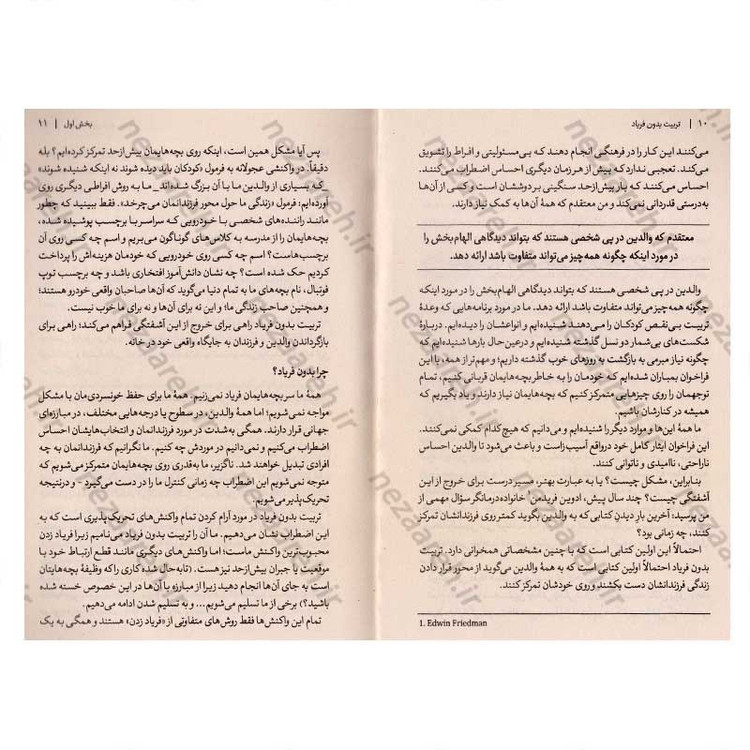 ۱۰ | تربیت بدون فریاد
می‌کنند این کار را در فرهنگی انجام دهند که بی‌مسئولیتی و افراط را تشویق
می‌کند. تعجبی ندارد که بیش از هر زمان دیگری احساس اضطراب می‌کنند.
احساس می‌کنند که بار بیش‌ازحد سنگینی بر دوششان است و کسی از آن‌ها
به‌درستی قدردانی نمی‌کند و من معتقدم که همهٔ آن‌ها به کمک نیاز دارند.
معتقدم که والدین در پی شخصی هستند که بتواند دیدگاهی الهام‌بخش را
در مورد اینکه چگونه همه‌چیز می‌تواند متفاوت باشد ارائه دهد.
والدین در پی شخصی هستند که بتواند دیدگاهی الهام‌بخش را در مورد اینکه
چگونه همه‌چیز می‌تواند متفاوت باشد ارائه دهد. ما در مورد برنامه‌هایی که وعدهٔ
تربیت بی‌نقص کودکان را می‌دهند شنیده‌ایم و انواعشان را دیده‌ایم. دربارهٔ
شکست‌های بی‌شمار دو نسل گذشته شنیده‌ایم و درعین‌حال بارها شنیده‌ایم که
چگونه نیاز مبرمی به بازگشت به روزهای خوب گذشته داریم؛ و مهم‌تر از همه، با این
فراخوان بمباران شده‌ایم که خودمان را به خاطر بچه‌هایمان قربانی کنیم، تمام
توجهمان را روی چیزهایی متمرکز کنیم که بچه‌هایمان نیاز دارند و یاد بگیریم که
همیشه در کنارشان باشیم.
ما همهٔ این‌ها و موارد دیگر را شنیده‌ایم و می‌دانیم که هیچ‌کدام کمکی نمی‌کند.
این فراخوان ایثار کامل خود درواقع آسیب‌زاست و باعث می‌شود تا والدین احساس
ناراحتی، ناامیدی و ناتوانی کنند.
بنابراین، مشکل چیست؟ یا به عبارت بهتر، مسیر درست برای خروج از این
آشفتگی چیست؟ چند سال پیش، ادوین فریدمن¹ خانواده‌درمانگر سؤال مهمی از
من پرسید: آخرین بار دیدنِ کتابی که به والدین بگوید کمتر روی فرزندانشان تمرکز
کنند، چه زمانی بود؟
احتمالاً این اولین کتابی است که با چنین مشخصاتی همخوانی دارد. تربیت
بدون فریاد احتمالاً اولین کتابی است که به همهٔ والدین می‌گوید از محور قرار دادن
زندگی فرزندانشان دست بکشند و روی خودشان تمرکز کنند.
1. Edwin Friedman
بخش اول | ۱۱
پس آیا مشکل همین است، اینکه روی بچه‌هایمان بیش‌ازحد تمرکز کرده‌ایم؟ بله
دقیقاً. در واکنشی عجولانه به فرمول «کودکان باید دیده شوند نه اینکه شنیده شوند»
_که بسیاری از والدین ما با آن بزرگ شده‌اند_ ما به روش افراطی دیگری روی
آورده‌ایم: فرمول «زندگی ما حول محور فرزندانمان می‌چرخد». فقط ببینید که چطور
مانند راننده‌های شخصی با خودرویی که سراسر با برچسب پوشیده شده،
بچه‌هایمان را از مدرسه به کلاس‌های گوناگون می‌بریم و اسم چه کسی روی آن
برچسب‌هاست؟ اسم چه کسی روی خودرویی که خودمان هزینه‌اش را پرداخت
کردیم حک شده است؟ چه نشان دانش‌آموز افتخاری باشد و چه برچسب توپ
فوتبال، نام بچه‌های ما به تمام دنیا می‌گوید که آن‌ها صاحبان واقعی خودرو هستند؛
و همچنین صاحب زندگی ما؛ و این نه برای آن‌ها و نه برای ما خوب نیست.
تربیت بدون فریاد راهی برای خروج از این آشفتگی فراهم می‌کند؛ راهی برای
بازگرداندن والدین و فرزندان به جایگاه واقعی خود در خانه.
چرا بدون فریاد؟
همهٔ ما سر بچه‌هایمان فریاد نمی‌زنیم. همهٔ ما برای حفظ خونسردی‌مان با مشکل
مواجه نمی‌شویم؛ اما همهٔ والدین، در سطوح یا درجه‌هایی مختلف، در مبارزه‌ای
جهانی قرار دارند. همگی به‌شدت در مورد فرزندانمان و انتخاب‌هایشان احساس
اضطراب می‌کنیم و نمی‌دانیم در موردش چه کنیم. ما نگرانیم که فرزندانمان به چه
افرادی تبدیل خواهند شد. ناگزیر، ما به‌قدری روی بچه‌هایمان متمرکز می‌شویم که
متوجه نمی‌شویم این اضطراب چه زمانی کنترل ما را در دست می‌گیرد - و درنتیجه
تحریک‌پذیر می‌شویم.
تربیت بدون فریاد در مورد آرام کردن تمام واکنش‌های تحریک‌پذیری است که به
این اضطراب نشان می‌دهیم. ما آن را تربیت بدون فریاد می‌نامیم زیرا فریاد زدن
محبوب‌ترین واکنش ماست؛ اما واکنش‌های دیگری مانند قطع ارتباط خود با
موقعیت یا جبران بیش‌ازحد نیز هست. (تابه‌حال شده کاری را که وظیفهٔ بچه‌هایتان
است به جای آن‌ها انجام دهید زیرا از مبارزه با آن‌ها در این خصوص خسته شده
باشید؟) برخی از ما تسلیم می‌شویم... و به تسلیم شدن ادامه می‌دهیم.
تمام این واکنش‌ها فقط روش‌های متفاوتی از «فریاد زدن» هستند و همگی به یک
nezaareh.ir